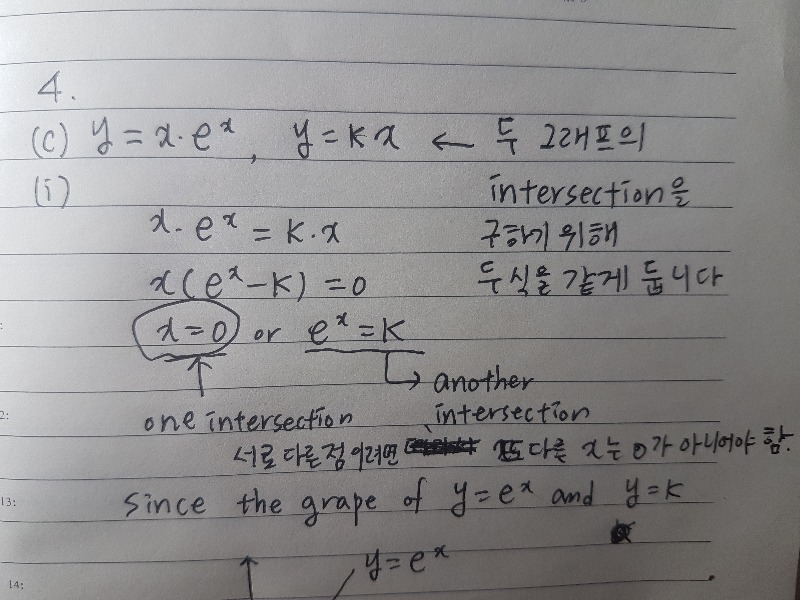 4.
(c) y = x · eˣ , y = kx ← 두 그래프의
(i) intersection을
x · eˣ = k · x 구하기 위해
x(eˣ - k) = 0 두 식을 같게 둡니다
x = 0 or eˣ = k
another
one intersection intersection
서로 다른 점이려면 또 다른 x는 0가 아니어야 함.
13: Since the grape of y = eˣ and y = k
y = eˣ
14: